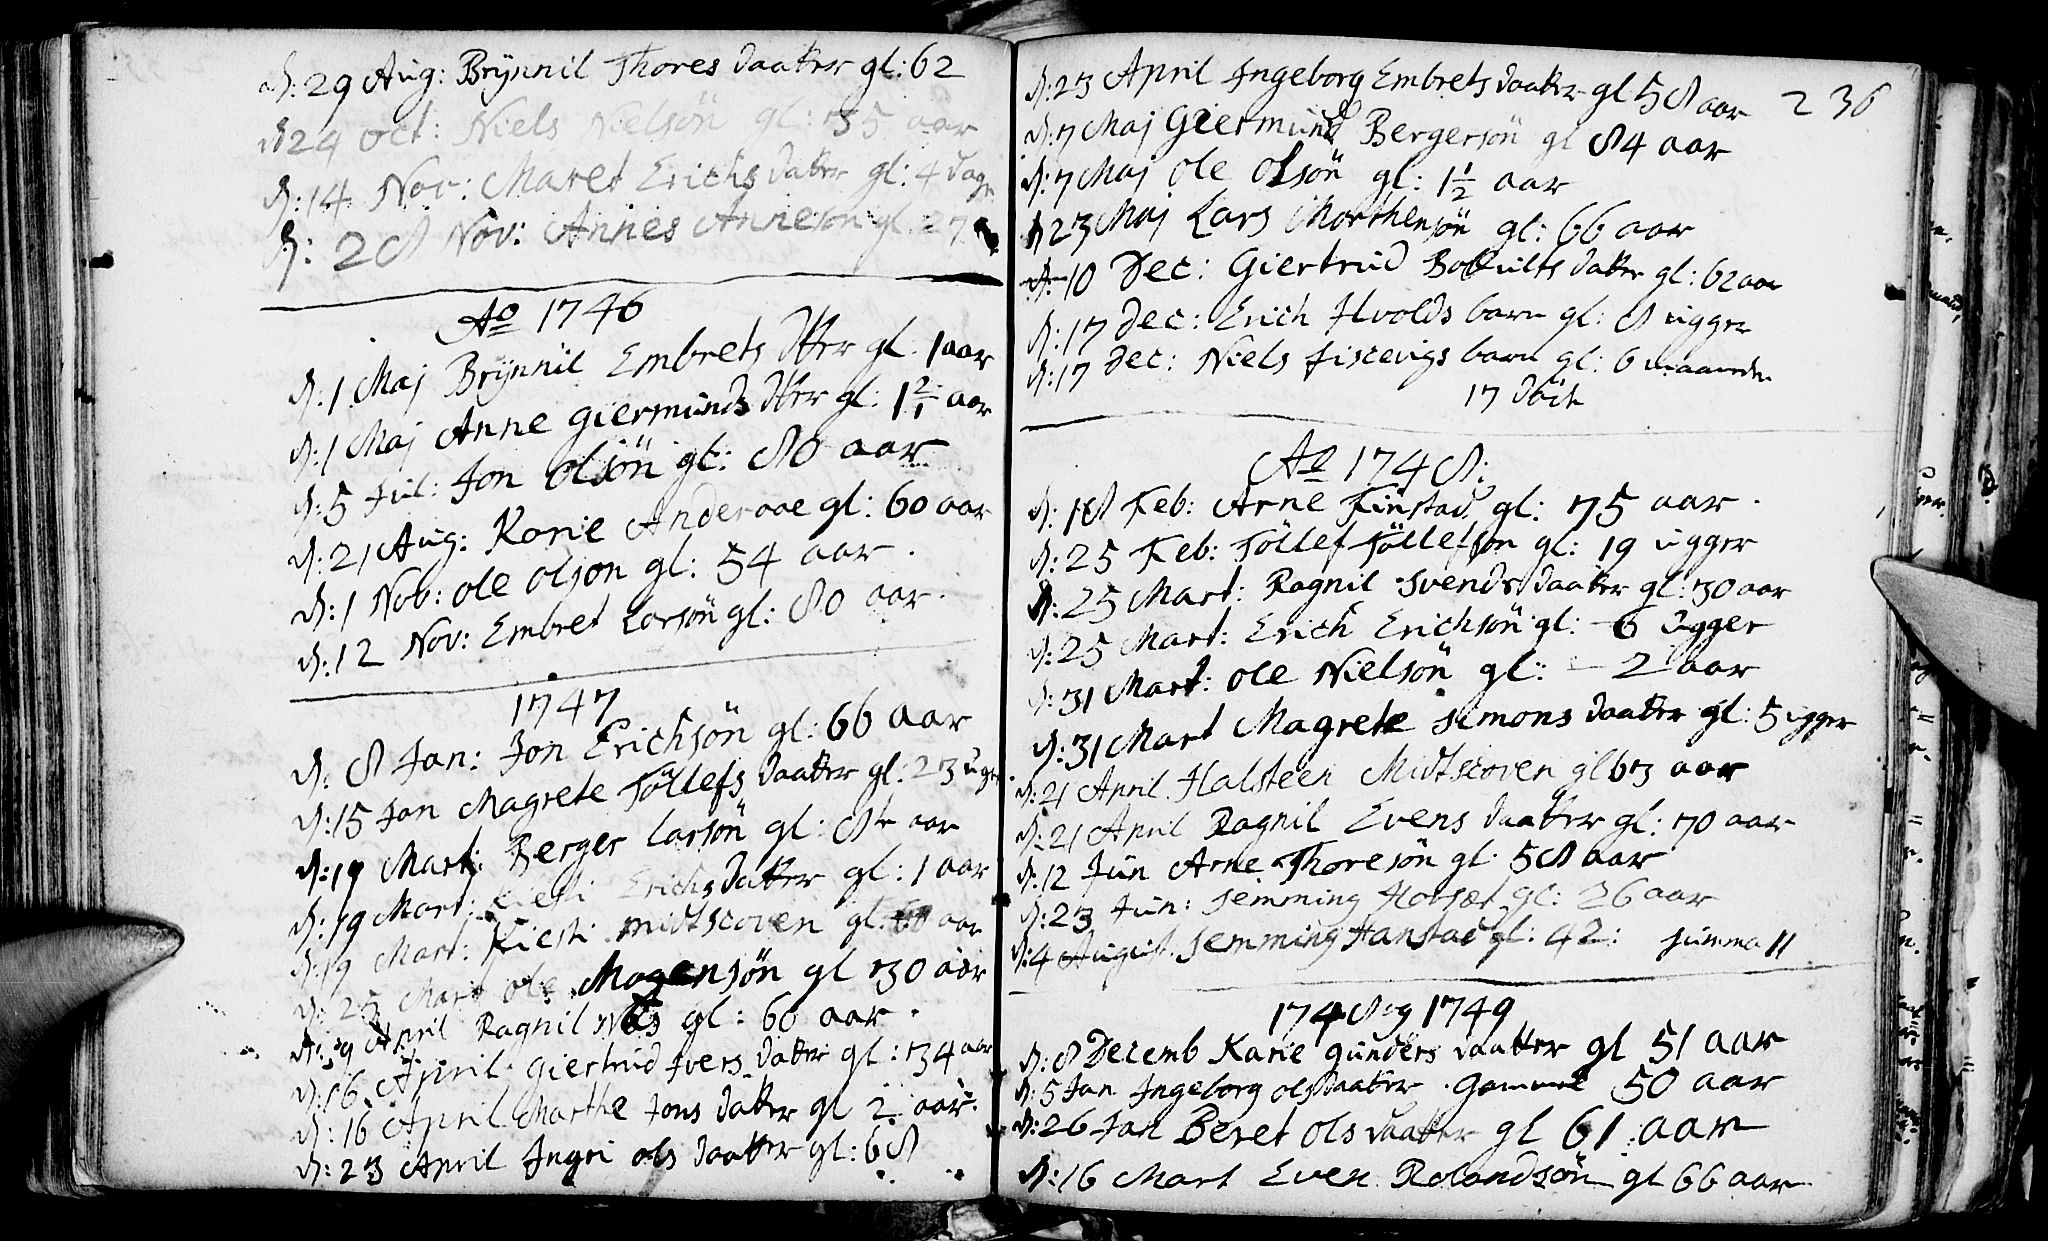 D: 29 Aug: Brÿnnil Thores daatter gl: 62
D 24 Oct: Niels Nielsön gl: 35 aar
D: 14 Nov: Maret Erichs datter gl: 4 dage
D: 28 Nov: Annes Anneson gl: 27
Ao 1746
D: 1 Maj Brÿnnil Embrets dtter gl: 1 aar
D: 1 Maj Anne Giermunds dtter gl: 1 2/1 aar
D: 5 Jul: Jon Olsön gl: 80 aar
D: 21 Aug: Karie Anderaae gl: 60 aar
D: 1 Nob: Ole Olson gl: 54 aar
D: 12 Nov: Embret Larsön gl: 80 aar
1747
D: 8 Jan: Jon Erichsön gl: 66 aar
D: 15 Jan Magrete Töllefs daatter gl: 23 uger
D: 19 Mart: Berger Larsön gl: aar
D: 19 Mart: Erichs datter gl: 1 aar
D: 19 Mart: Kiesti Midtscoven gl: 60 aar
D: 25 Mart Ole Mogensön gl 30 aar
D: 9 April Ragnil gl: 60 aar
D: 16 April Giertrud Ivers datter gl: 34 aar
D: 16 April Marthe Jons datter gl 2 aar
D: 23 April Ingri Ols daatter gl: 68
236
D: 23 April Ingeborg Embrets daatter gl 58 aar
D: 7 Maj Giermund Bergersön gl 84 aar
D: 7 Maj Ole Olsön gl: 1 1/2 aar
D 23 Maj Lars Morthensön gl: 66 aar
D: 10 Dec: Giertrud datter gl: 62 aar
D: 17 Dec: Erich Hvolds barn gl: 8 ugger
D: 17 Dec: Niels Fiscevigs barn gl: 6 maaneder
17 döde
Ao 1748:
D: 18 Feb: Arne Finstad gl: 75 aar
D: 25 Feb: Töllef Töllefson gl: 19 ugger
D: 25 Mart: Ragnil Svends daatter gl: 30 aar
D: 25 Mart: Erich Erichsön gl: 6 ugger
D: 31 Mart: Ole Nielsön gl: 2 aar
D: 31 Mart Magrete Simons daatter gl: 5 ugger
D: 21 April Halsteen Midtscoven gl 63 aar
D: 21 April Ragnil Evens daatter gl: 70 aar
D: 12 Jun Arne Thoresön gl: 58 aar
D: 23 Jun: Semming Horset gl: 26 aar
D: 4 August Semming Hanstad gl: 42: summa 11
1748 og 1749
D: 8 Decemb Karie Gunders daatter gl 51 aar
D: 5 Jan Ingeborg Ols daatter Gammel 50 aar
D: 26 Jan Beret Ols daatter gl 61 aar
D: 16 Mart Even Rolandsön gl 66 aar